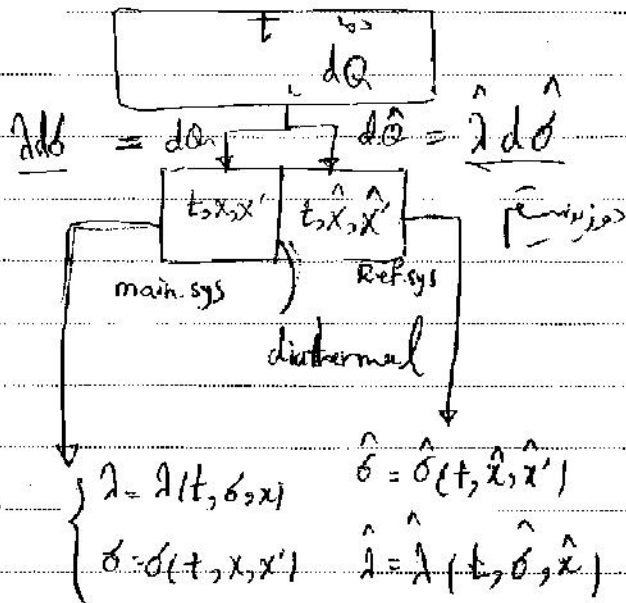 t
dQ
λdσ = dQ dQ̂ = λ̂ dσ̂
t, x, x' t, x̂, x̂'
main.sys Ref.sys
diathermal
λ = λ(t, σ, x) σ̂ = σ̂(t, x̂, x̂')
σ = σ(t, x, x') λ̂ = λ̂(t, σ̂, x̂)